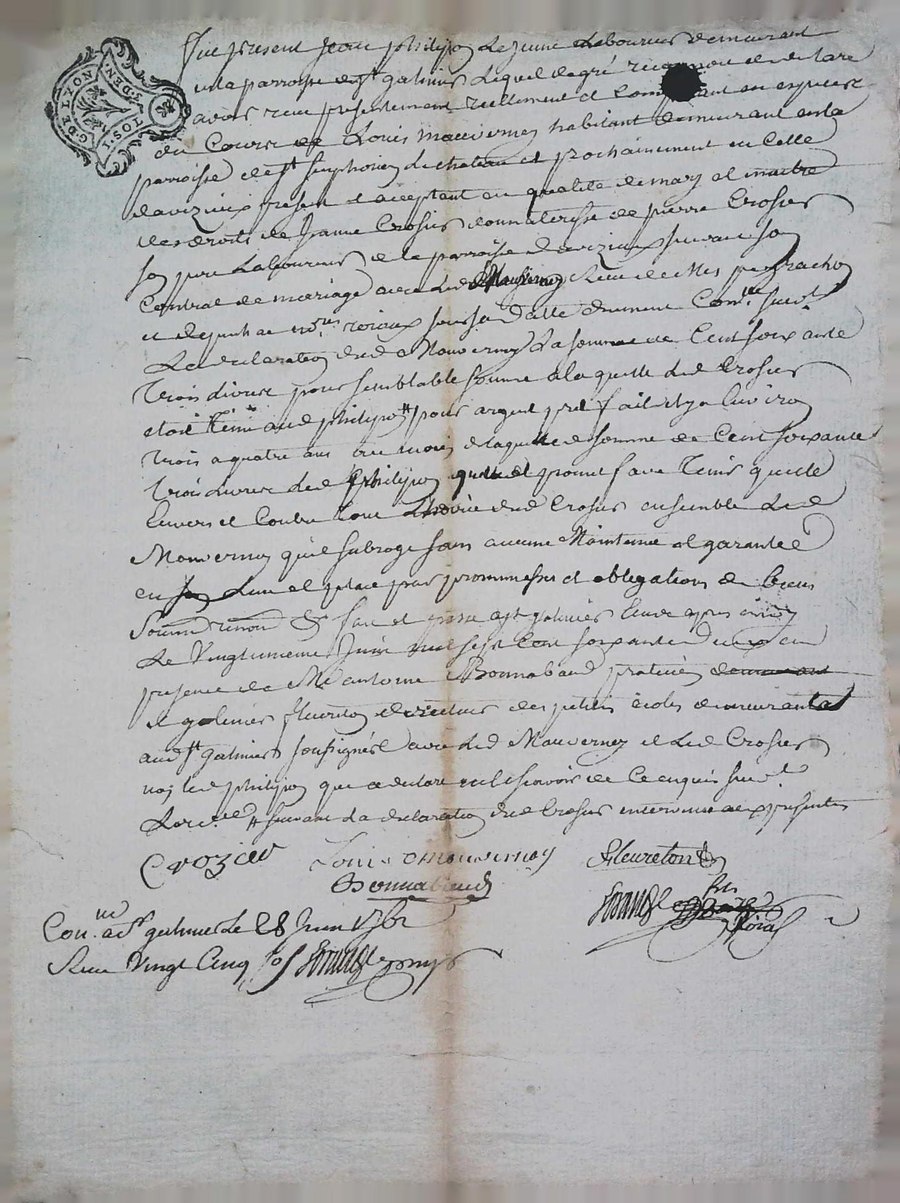 G. DE LYON
DEN.
I. SOL
Fut present Jean philipon le jeune Laboureur demeurant
en la parroisse de st galmier Lequel de gré reconnou et declare
avoir reçu presentement reellement et comptant en especes
du Cours de Louis mauvernay habitant demeurant en la
parroisse de st simphorien le chateau et prochainement en Celle
daveizieux present et acceptant en qualité de mary et maitre
des droits de Jeanne Crosier donnateresse de pierre Crosier
son pere Laboureur de la parroisse d'aveizieux suivant son
Contrat de mariage avec led Mauvernay Reçu de Mes
et no.res roiaux sous sa datte duement Con.lé suiv.t
La declaration dud Mouvernay La somme de Cent soixante
Trois Livres pour semblable somme a laquelle led Crosier
etoit Tenu aud philipon # pour argent pret fait il y a Environ
Trois a quatre ans de laquelle somme de Cent soixante
Trois Livres led Philipon quitte et promet faire Tenir quitte
Envers et Contre Tous dud Crosier ensemble Led
Mouvernay qu'il subroge sans aucune Maintenue et garantie
en son Lieu et place par promesses et obligations de biens
Soumi renon &c fait et passé a st galmier Etude apres midy
Le Vingt juin mil sept Cent soixante deux en
presence de Me antoine Bonnabaud praticien demeurant
et galmier fleureton directeur des petites écoles demeurants
aud st galmier soussignés avec led Mauvernay et Led Crosier
non led philipon qui a declaré ne le scavoir de Ce enquis suiv.t
Lord.ce # suivant la declaration dud Crosier intervenu aux presentes
Crozier Louis mouvernay fleureton
Bonnabaud
roial
Con.lé a st galmier Le 28 Juin 1762
Reçu Vingt Cinq sols